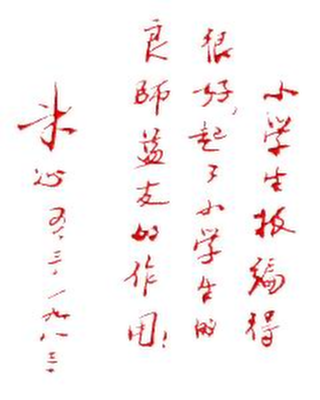 小学生报编得
很好,起了小学生的
良師益友的作用!
冰心 五、三、一九八三.